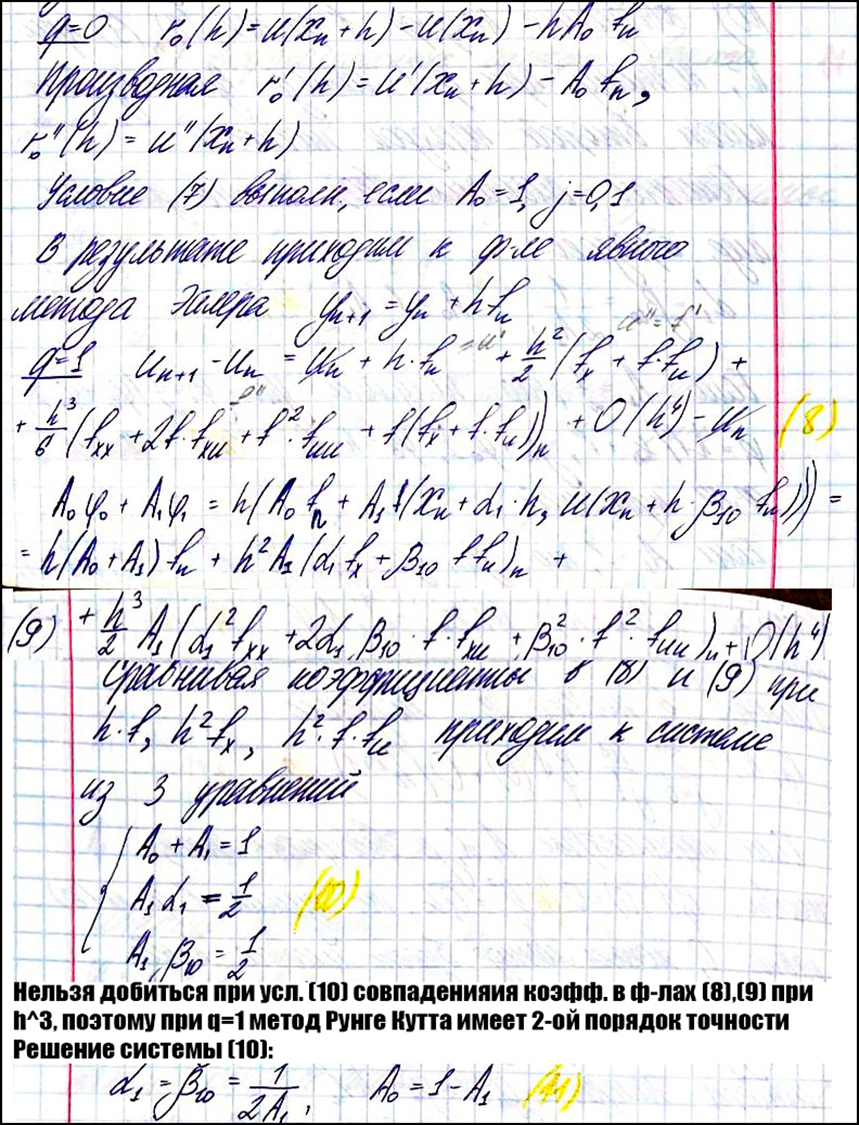 q=0 r₀(h)=u(xₙ+h)-u(xₙ)-hA₀fₙ
Производная r₀'(h)=u'(xₙ+h)-A₀fₙ,
r₀''(h)=u''(xₙ+h)
Условие (7) выполн., если A₀=1, j=0,1
В результате приходим к ф-ле явного
метода Эйлера yₙ₊₁=yₙ+hfₙ
u''=f'
q=1 uₙ₊₁-uₙ=uₙ+h·fₙ =u' +h²/2(fₓ+f·fᵤ)+
+h³/6(fₓₓ+2f·fₓᵤ+f²·fᵤᵤ+f(fₓ+f·fᵤ))ₙ+O(h⁴)-uₙ (8)
A₀φ₀+A₁φ₁=h(A₀fₙ+A₁f(xₙ+α₁·h, u(xₙ+h·β₁₀fₙ)))=
=h(A₀+A₁)fₙ+h²A₁(α₁fₓ+β₁₀ffᵤ)ₙ+
(9) +h³/2 A₁(α₁²fₓₓ+2α₁β₁₀·f·fₓᵤ+β₁₀²·f²·fᵤᵤ)ₙ+O(h⁴)
Сравнивая коэффициенты в (8) и (9) при
h·f, h²fₓ, h²·f·fᵤ приходим к системе
из 3 уравнений
A₀+A₁=1
A₁α₁=1/2 (10)
A₁β₁₀=1/2
Нельзя добиться при усл. (10) совпаденияия коэфф. в ф-лах (8),(9) при
h^3, поэтому при q=1 метод Рунге Кутта имеет 2-ой порядок точности
Решение системы (10):
α₁=β₁₀=1/2A₁, A₀=1-A₁ (A1)